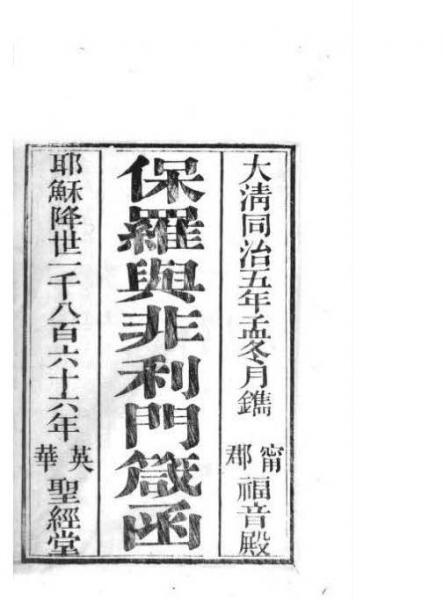 大清同治五年孟冬月鐫甯郡福音殿
保羅與非利門箴函
耶穌降世一千八百六十六年英華聖經堂